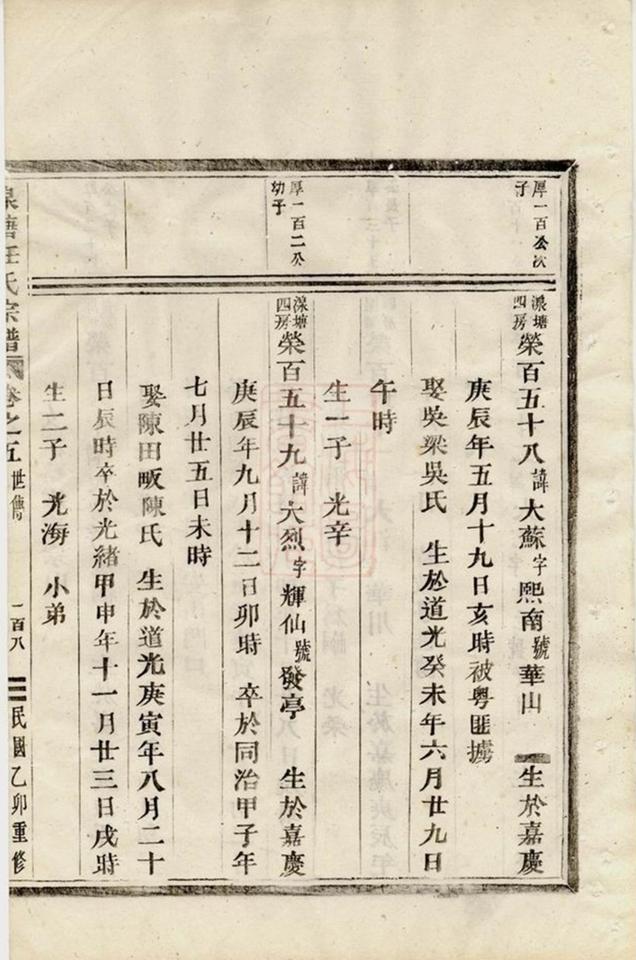 厚一百公次
子
湶塘
四房
榮百五十八諱大蘇字熙南號華山 生於嘉慶
庚辰年五月十九日亥時被粤匪擄
娶吳梁吳氏 生於道光癸未年六月廿九日
午時
生一子 光辛
厚一百二公
幼子
湶塘
四房
榮百五十九諱大烈字輝仙號發亭 生於嘉慶
庚辰年九月十二日卯時 卒於同治甲子年
七月廿五日未時
娶陳田畈陳氏 生於道光庚寅年八月二十
日辰時卒於光緒甲申年十一月廿三日戌時
生二子 光海 小弟
湶塘汪氏宗譜 卷之五世傳 一百八 民國乙卯重修